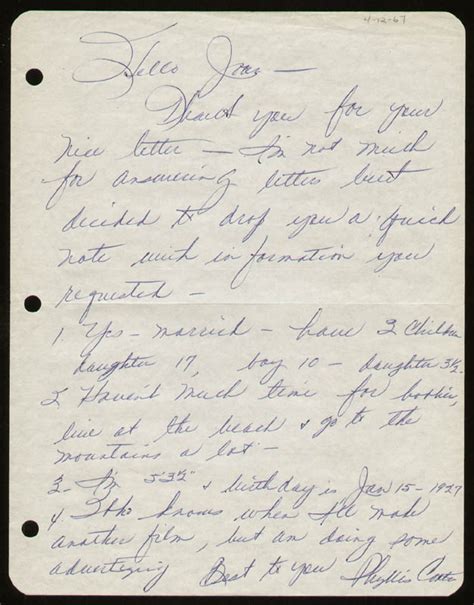 4-12-67
Hello Joan —
Thank you for your
nice letter — I'm not much
for answering letters but
decided to drop you a quick
note with information you
requested —
1. Yes – married – have 3 Children
daughter 17, boy 10 – daughter 3½.
2. Haven't much time for hobbies,
live at the beach & go to the
mountains a lot –
3. I'm 5'3½" & birthday is Jan 15 – 1927
4. Who knows when I'll make
another film, but am doing some
advertizing Best to you Phyllis Coates